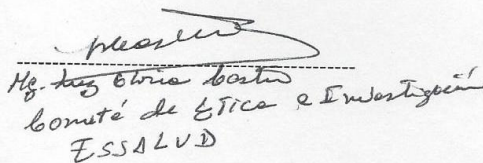 Mg. Luz Gloria Castro
Comité de Etica e Investigación
ESSALUD